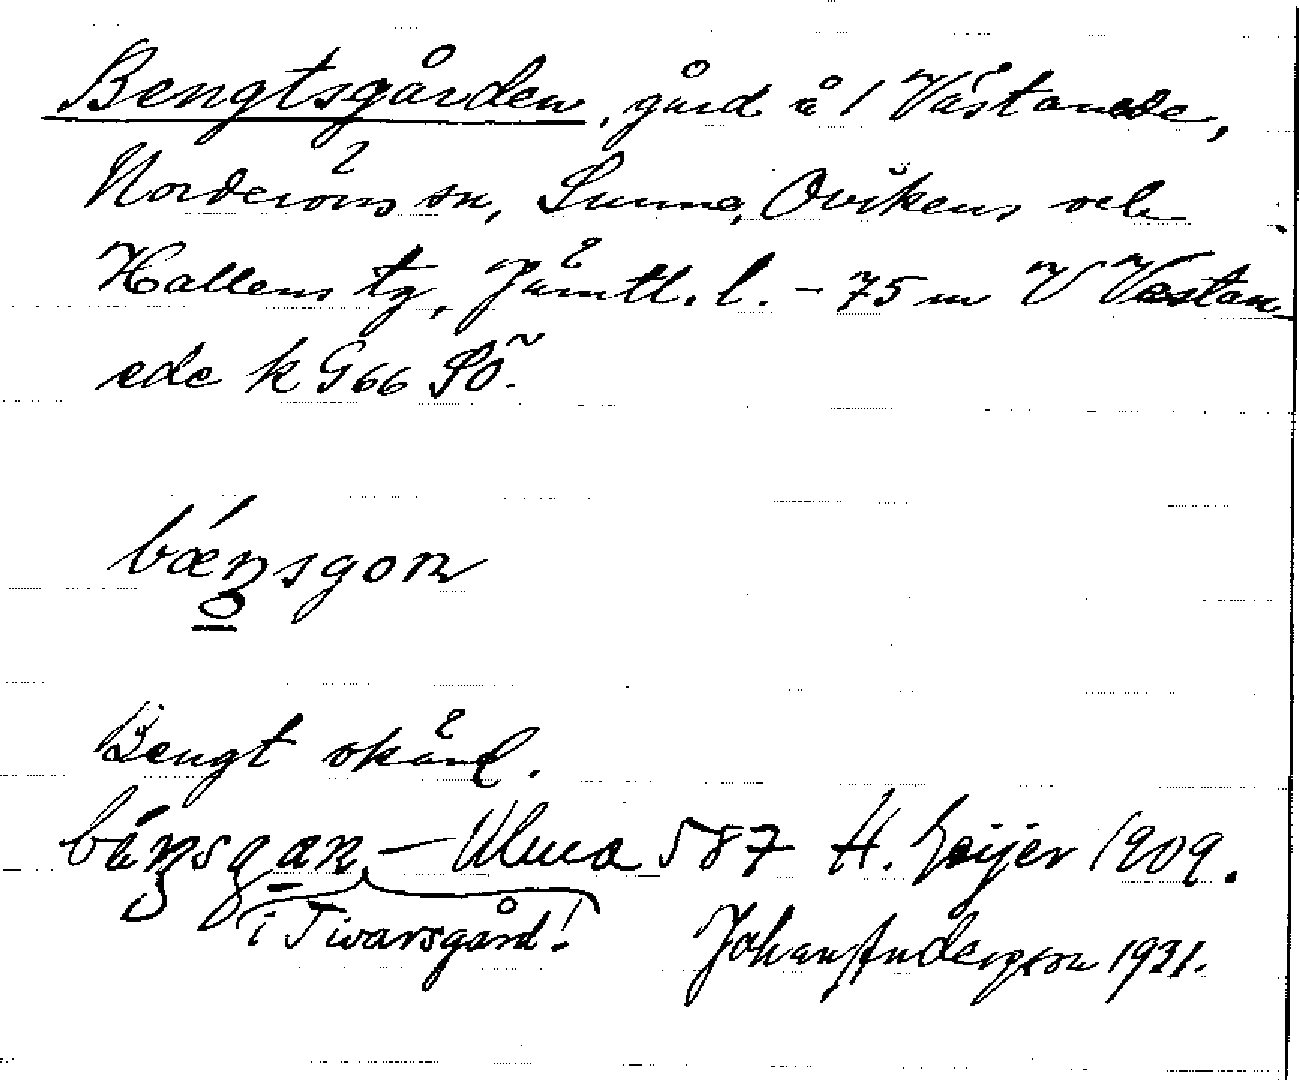 Bengtsgården, gård å 1 Västanede,
Norderöns sn, Sunne, Ovikens och
Hallens tg, Jämtl. l. – 75 m V Västan-
ede k G 66 SÖ.
bæŋsgon
Bengt okänd.
bäŋsgan – Ulma 587 H. Geijer 1909.
i Tivarsgård! Johan Anderson 1921.